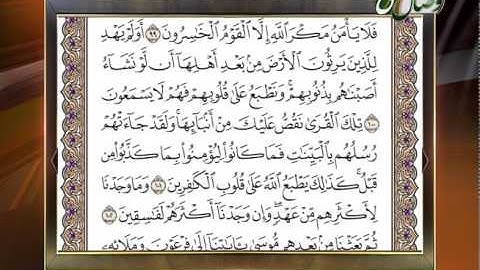 فَلَا يَأْمَنُ مَكْرَ ٱللَّهِ إِلَّا ٱلْقَوْمُ ٱلْخَـٰسِرُونَ ٩٩ أَوَلَمْ يَهْدِ
لِلَّذِينَ يَرِثُونَ ٱلْأَرْضَ مِنۢ بَعْدِ أَهْلِهَآ أَن لَّوْ نَشَآءُ
أَصَبْنَـٰهُم بِذُنُوبِهِمْ ۚ وَنَطْبَعُ عَلَىٰ قُلُوبِهِمْ فَهُمْ لَا يَسْمَعُونَ
١٠٠ تِلْكَ ٱلْقُرَىٰ نَقُصُّ عَلَيْكَ مِنْ أَنۢبَآئِهَا ۚ وَلَقَدْ جَآءَتْهُمْ
رُسُلُهُم بِٱلْبَيِّنَـٰتِ فَمَا كَانُوا۟ لِيُؤْمِنُوا۟ بِمَا كَذَّبُوا۟ مِن
قَبْلُ ۚ كَذَٰلِكَ يَطْبَعُ ٱللَّهُ عَلَىٰ قُلُوبِ ٱلْكَـٰفِرِينَ ١٠١ وَمَا وَجَدْنَا
لِأَكْثَرِهِم مِّنْ عَهْدٍ ۖ وَإِن وَجَدْنَآ أَكْثَرَهُمْ لَفَـٰسِقِينَ ١٠٢
ثُمَّ بَعَثْنَا مِنۢ بَعْدِهِم مُّوسَىٰ بِـَٔايَـٰتِنَآ إِلَىٰ فِرْعَوْنَ وَمَلَإِي۟هِۦ